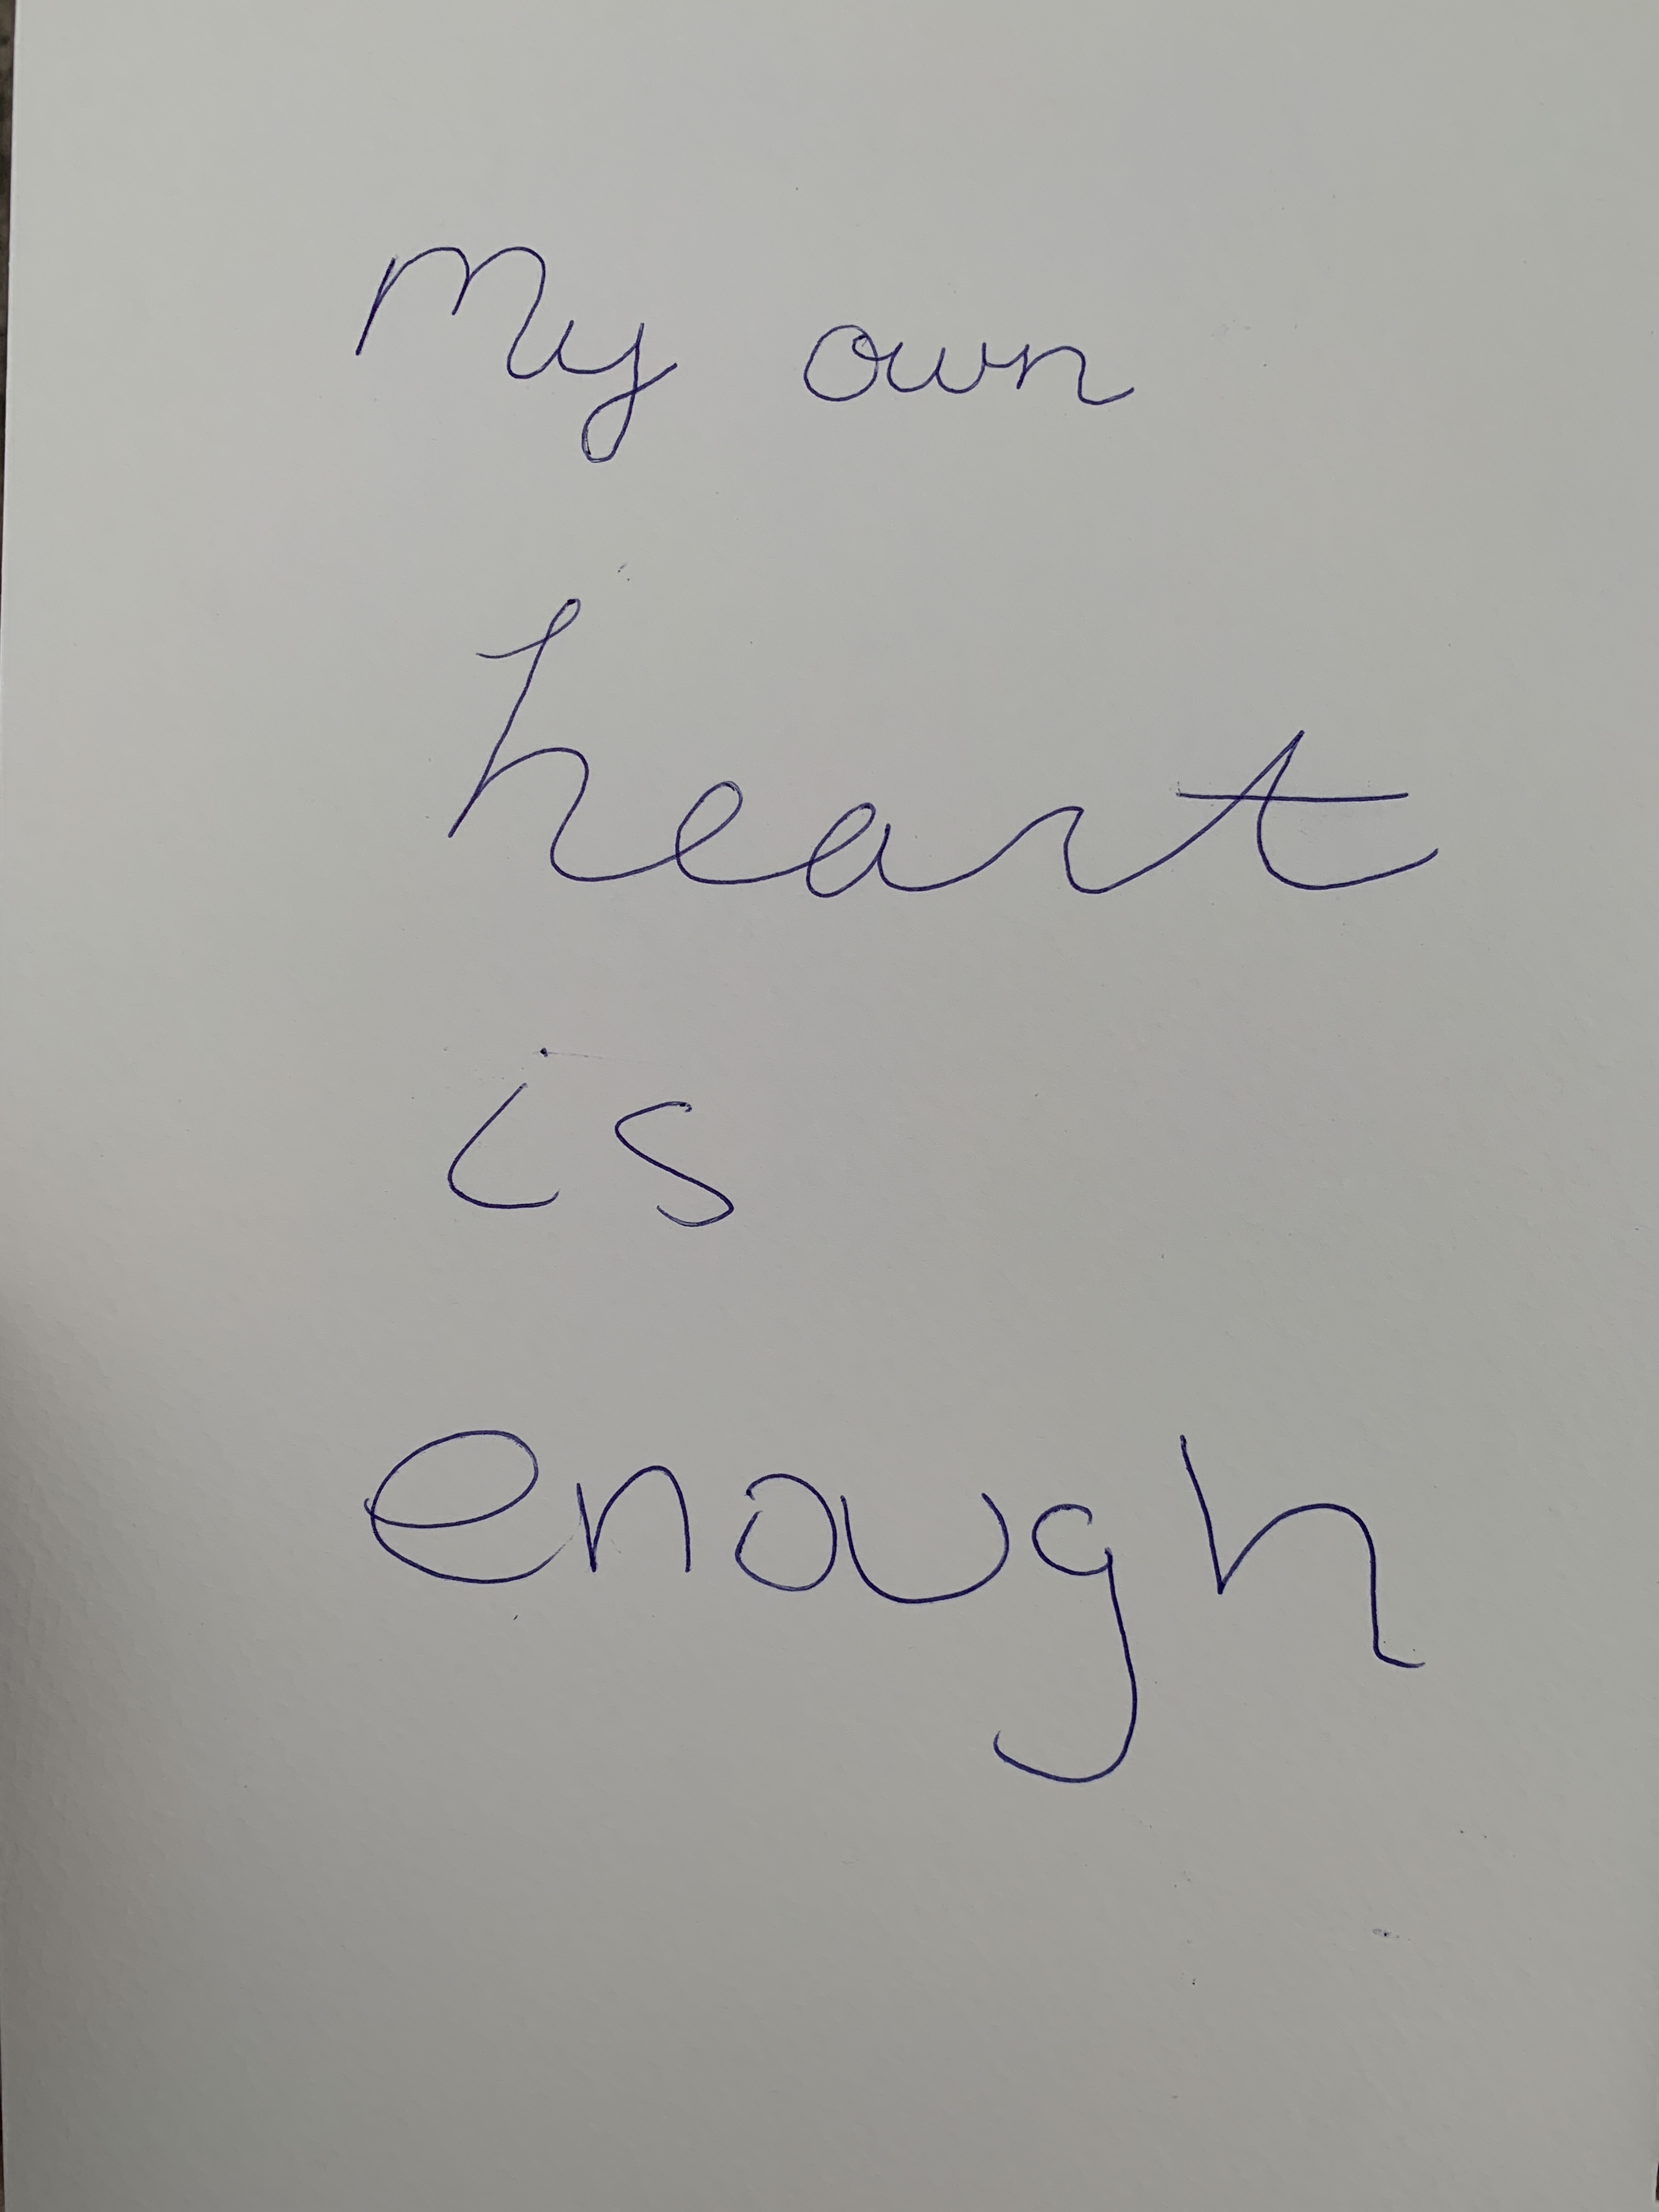 My own
heart
is
enough